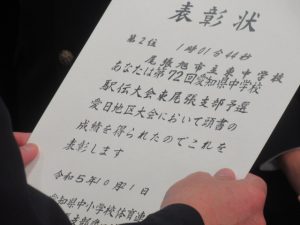 表彰状
第2位 1時01分44秒
尾張旭市立東中学校
あなたは第72回愛知県中学校
駅伝大会東尾張支部予選
愛日地区大会において頭書の
成績を得られたのでこれを
表彰します
令和5年10月1日
愛知県中小学校体育連